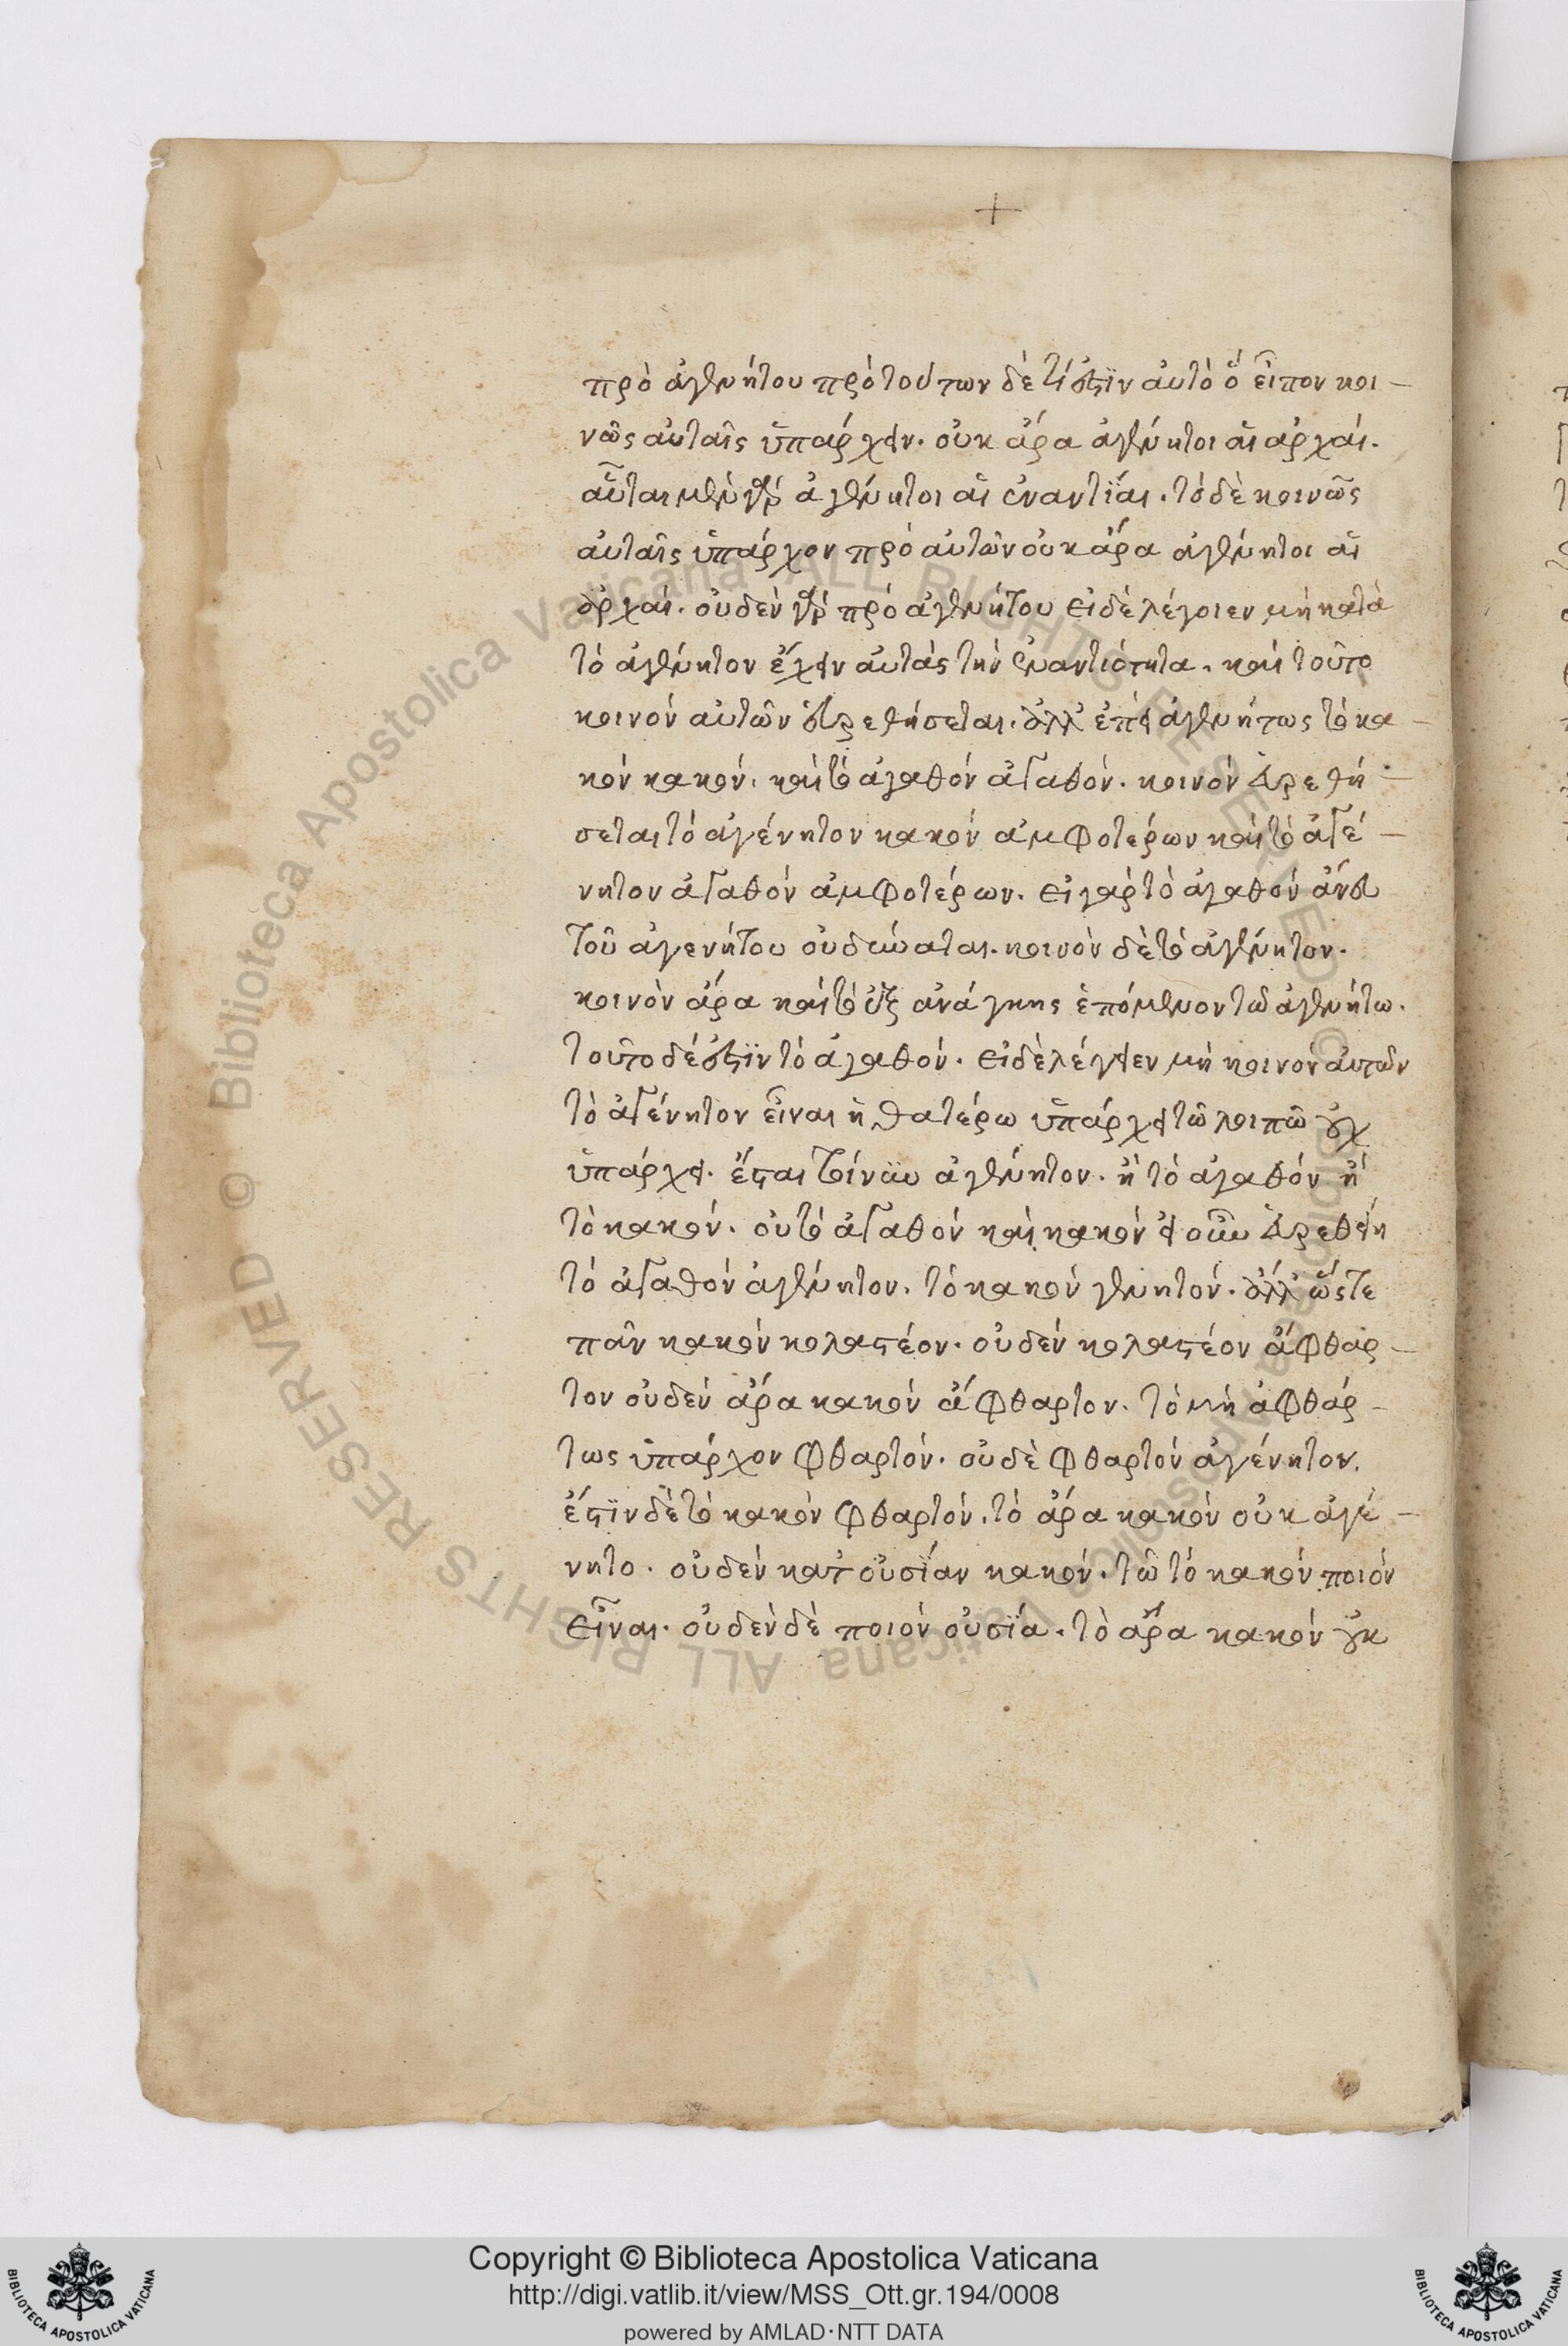 +
πρὸ ἀγενήτου πρὸ τούτων δὲ τί ἐστϊν αὐτὸ ὅ εἶπον κοι-
νῶς αὐταῖς ὑπάρχειν. οὐκ ἄρα ἀγένητοι αἱ ἀρχάι.
αὗται μὲν γὰρ ἀγένητοι αἱ ἐναντΐαι. τὸ δὲ κοινῶς
αὐταῖς ὑπάρχον πρὸ αὐτῶν οὐκ ἄρα ἀγένητοι αἱ
ἀρχάι. οὐδὲν γὰρ πρὸ ἀγενήτου εἰ δὲ λέγοιεν μὴ κατὰ
τὸ ἀγένητον ἔχειν αὐτὰς τὴν ἐναντιότητα. καὶ τοῦτο
κοινὸν αὐτῶν εὑρεθήσεται. ἀλλ' ἐπεὶ ἀγενήτως τὸ κα-
κὸν κακόν. καὶ τὸ ἀγαθὸν ἀγαθόν. κοινὸν εὑρεθή-
σεται τὸ ἀγένητον κακὸν ἀμφοτέρων καὶ τὸ ἀγέ-
νητον ἀγαθὸν ἀμφοτέρων. εἰ γὰρ τὸ ἀγαθὸν ἄνευ
τοῦ ἀγενήτου οὐ δύναται. κοινὸν δὲ τὸ ἀγένητον.
κοινὸν ἄρα καὶ τὸ ἐξ ἀνάγκης ἑπόμενον τῶ ἀγενήτω.
τοῦτο δέ ἐστϊν τὸ ἀγαθόν. εἰ δὲ λέγειεν μὴ κοινὸν αὐτῶν
τὸ ἀγένητον εἶναι ἢ θατέρω ὑπάρχει τῶ λοιπῶ οὐχ
ὑπάρχει. ἔσται τὸ ἓν ἀγένητον. ἢ τὸ ἀγαθὸν ἢ
τὸ κακόν. οὐ τὸ ἀγαθὸν καὶ κακὸν εἰ οὖν εὑρεθείη
τὸ ἀγαθὸν ἀγένητον. τὸ κακὸν γενητόν. ἀλλ' ὥστε
πᾶν κακὸν κολαστέον. οὐδὲν κολαστέον ἄφθαρ-
τον οὐδὲν ἄρα κακὸν ἄφθαρτον. τὸ μὴ ἀφθάρ-
τως ὑπάρχον φθαρτόν. οὐδὲ φθαρτὸν ἀγένητον.
ἔστϊν δὲ τὸ κακὸν φθαρτόν. τὸ ἄρα κακὸν οὐκ ἀγέ-
νητο. οὐδὲν κατ' οὐσΐαν κακόν. τῶ τὸ κακὸν ποιὸν
εἶναι. οὐδὲν δὲ ποιὸν οὐσΐα. τὸ ἄρα κακὸν οὐκ
Copyright © Biblioteca Apostolica Vaticana
http://digi.vatlib.it/view/MSS_Ott.gr.194/0008
powered by AMLAD·NTT DATA
BIBLIOTECA APOSTOLICA VATICANA
BIBLIOTECA APOSTOLICA VATICANA
Biblioteca Apostolica Vaticana ALL RIGHTS RESERVED © Biblioteca Apostolica Vaticana ALL RIGHTS RESERVED ©